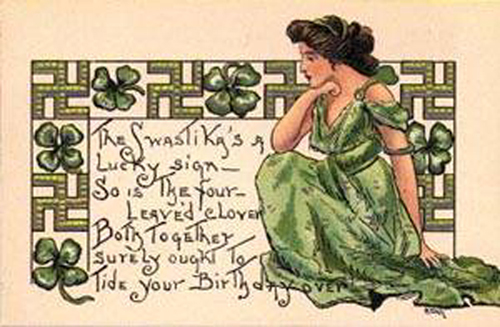 The Swastika's a
Lucky sign—
So is The Four-
Leaved clover
Both Together
surely ought To
Tide your Birthday over